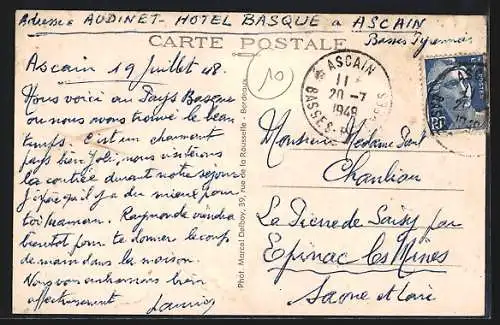 Adresse AUDINET - HOTEL BASQUE à ASCAIN
Basses Pyrennées
CARTE POSTALE
Ascain 19 juillet 48.
Nous voici au Pays Basque
où nous avons trouvé le beau
temps. C'est un charmant
pays bien joli, nous visiterons
la contrée durant notre séjour
J'espère qu'il y a du mieux pour
toi maman. Raymonde viendra
bientôt pour te donner le coup
de main dans la maison.
Nous vous embrassons bien
affectueusement
Phot. Marcel Delboy, 39, rue de la Rousselle - Bordeaux
10
ASCAIN
11
20-7
1948
BASSES-PYRÉNÉES
Monsieur Madame Paul
La Pierre de Saisy par
Epinac les Mines
Saone et Loire